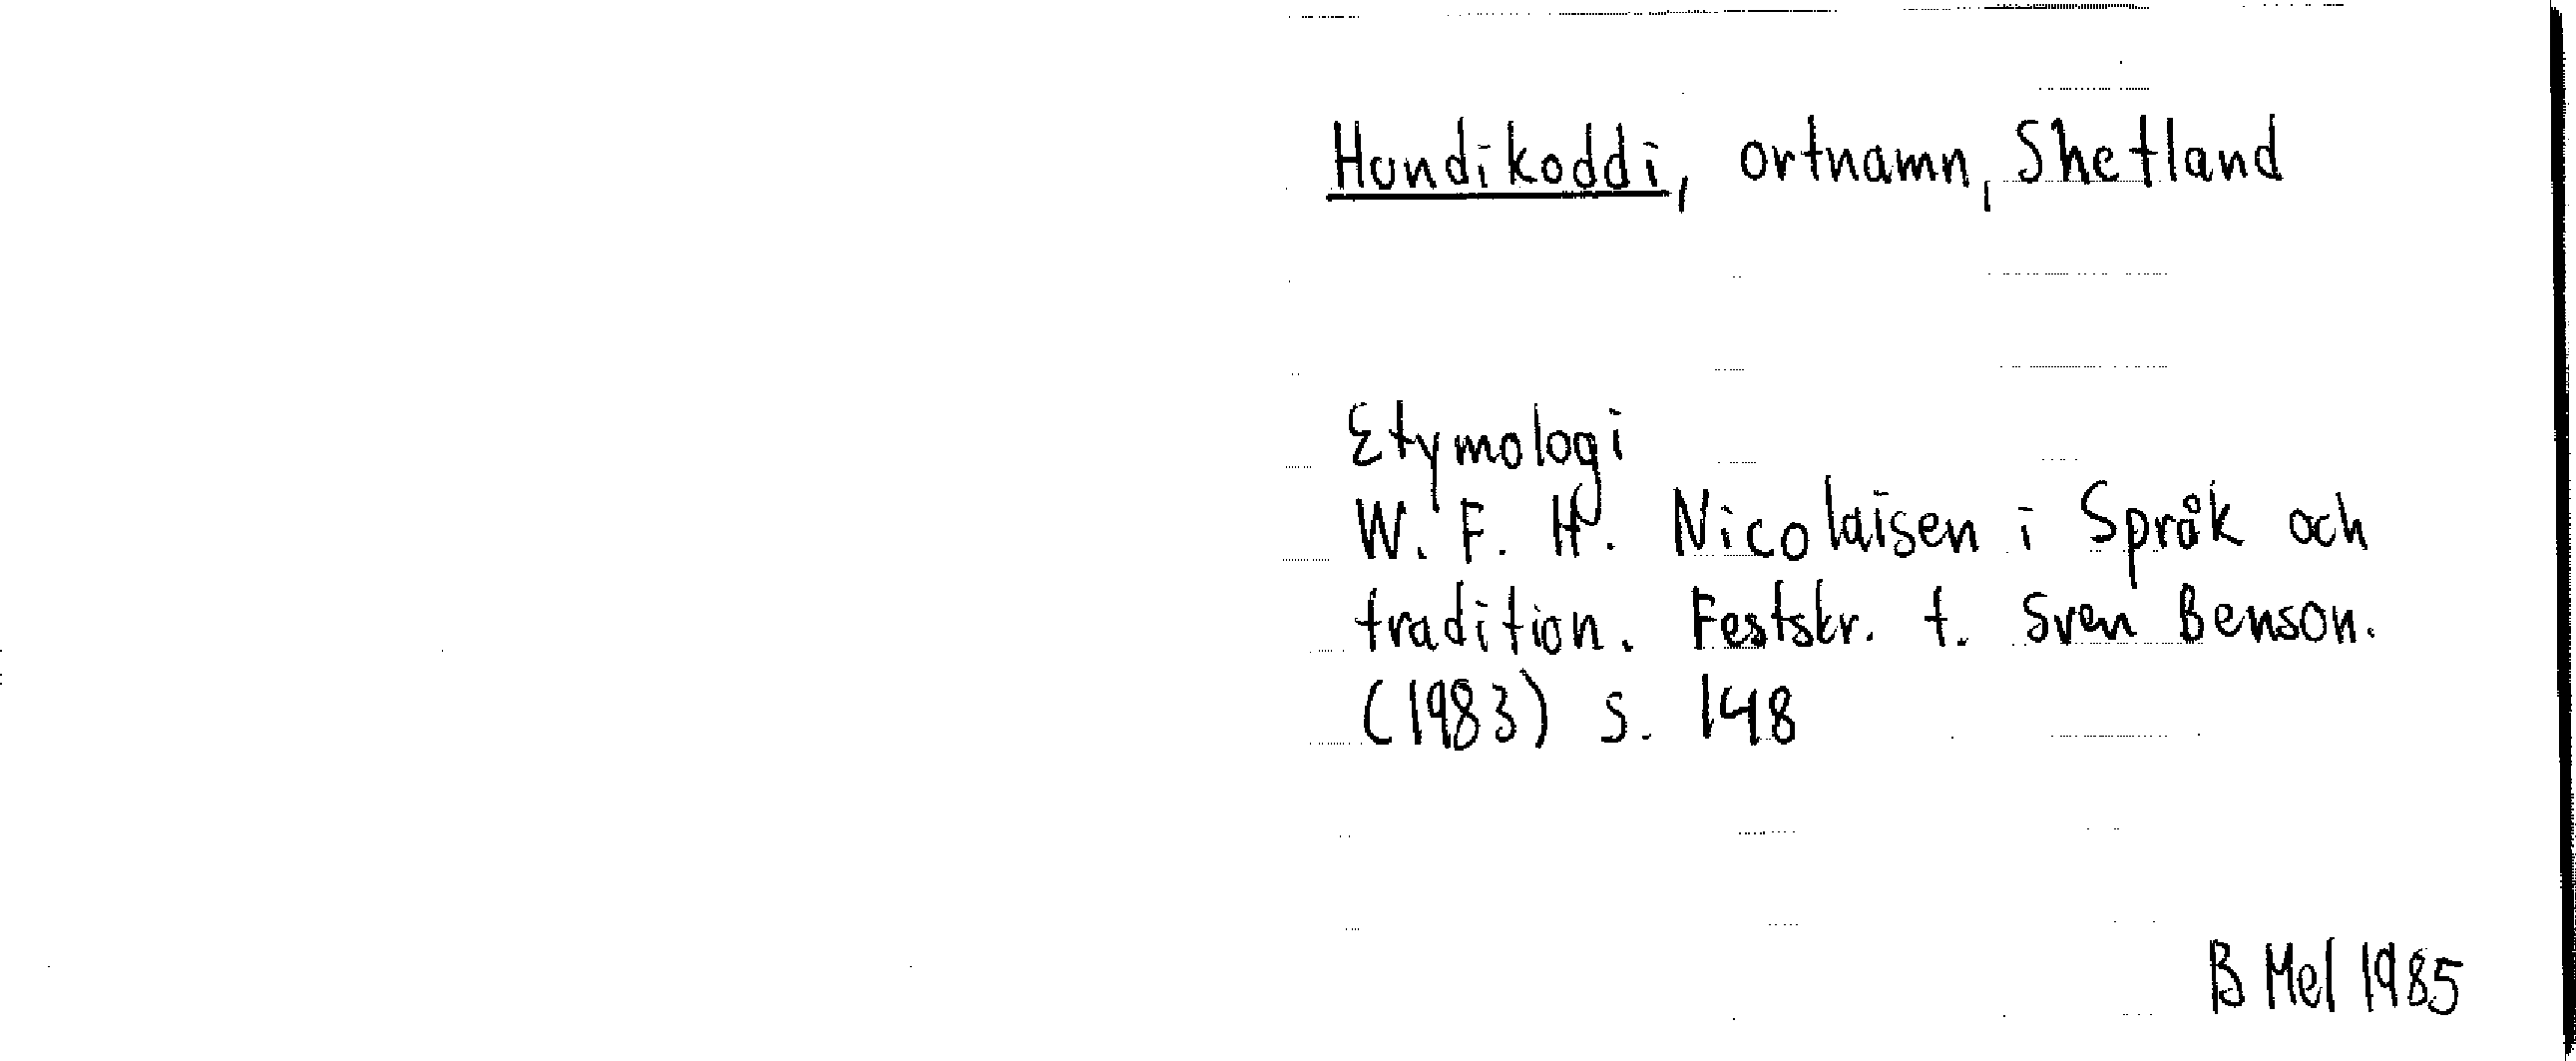 Hundikoddi, ortnamn, Shetland
Etymologi
W. F. H. Nicolaisen i Språk och
tradition. Festskr. t. Sven Benson.
(1983) s. 148
B Mel 1985